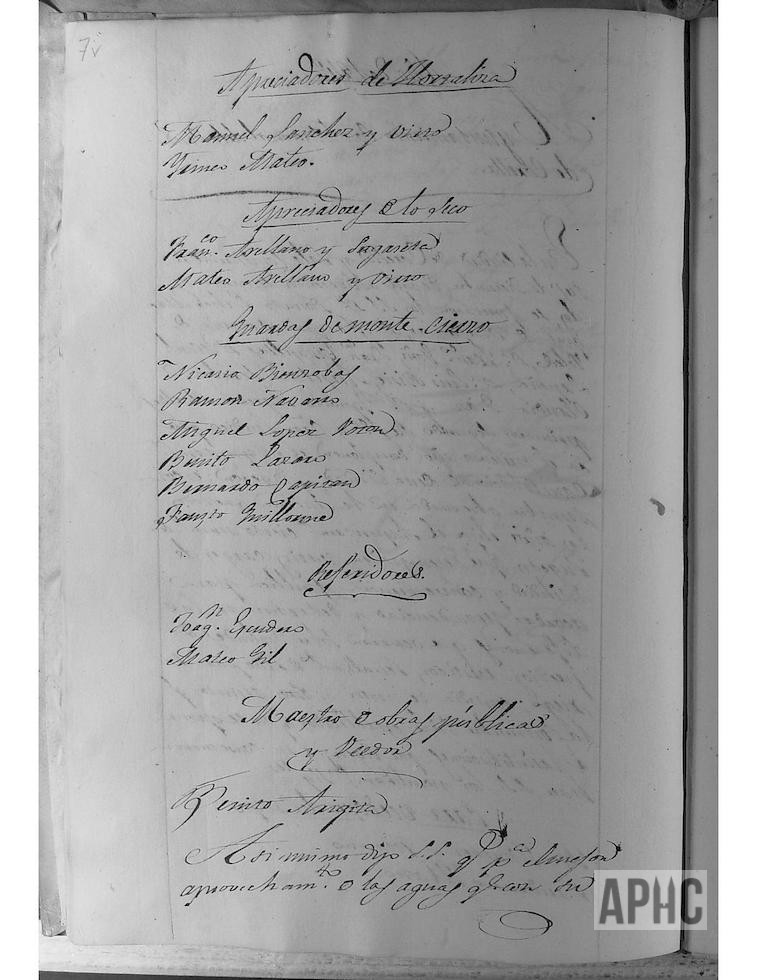 7v
Apreciadores de Hortaliza
Manuel Sanchez y vino
Mateo.
Apreciadores de lo seco
Fran.co Arellano y
Mateo Arellano y vino
Guardas de monte cierzo
Nicasio Bienzobas
Ramon Navarro
Miguel Lopez
Benito Lazaro
Bernardo Capitan
Fausto Guillorme
Referidores.
Joaq.n Escudero
Mateo Gil
Maestro de obras públicas
y Veedor
Benito Arigita
Asi mismo dijo S.S. q.e p.a el mejor
aprovecham.to de las aguas q.e con su
APHC